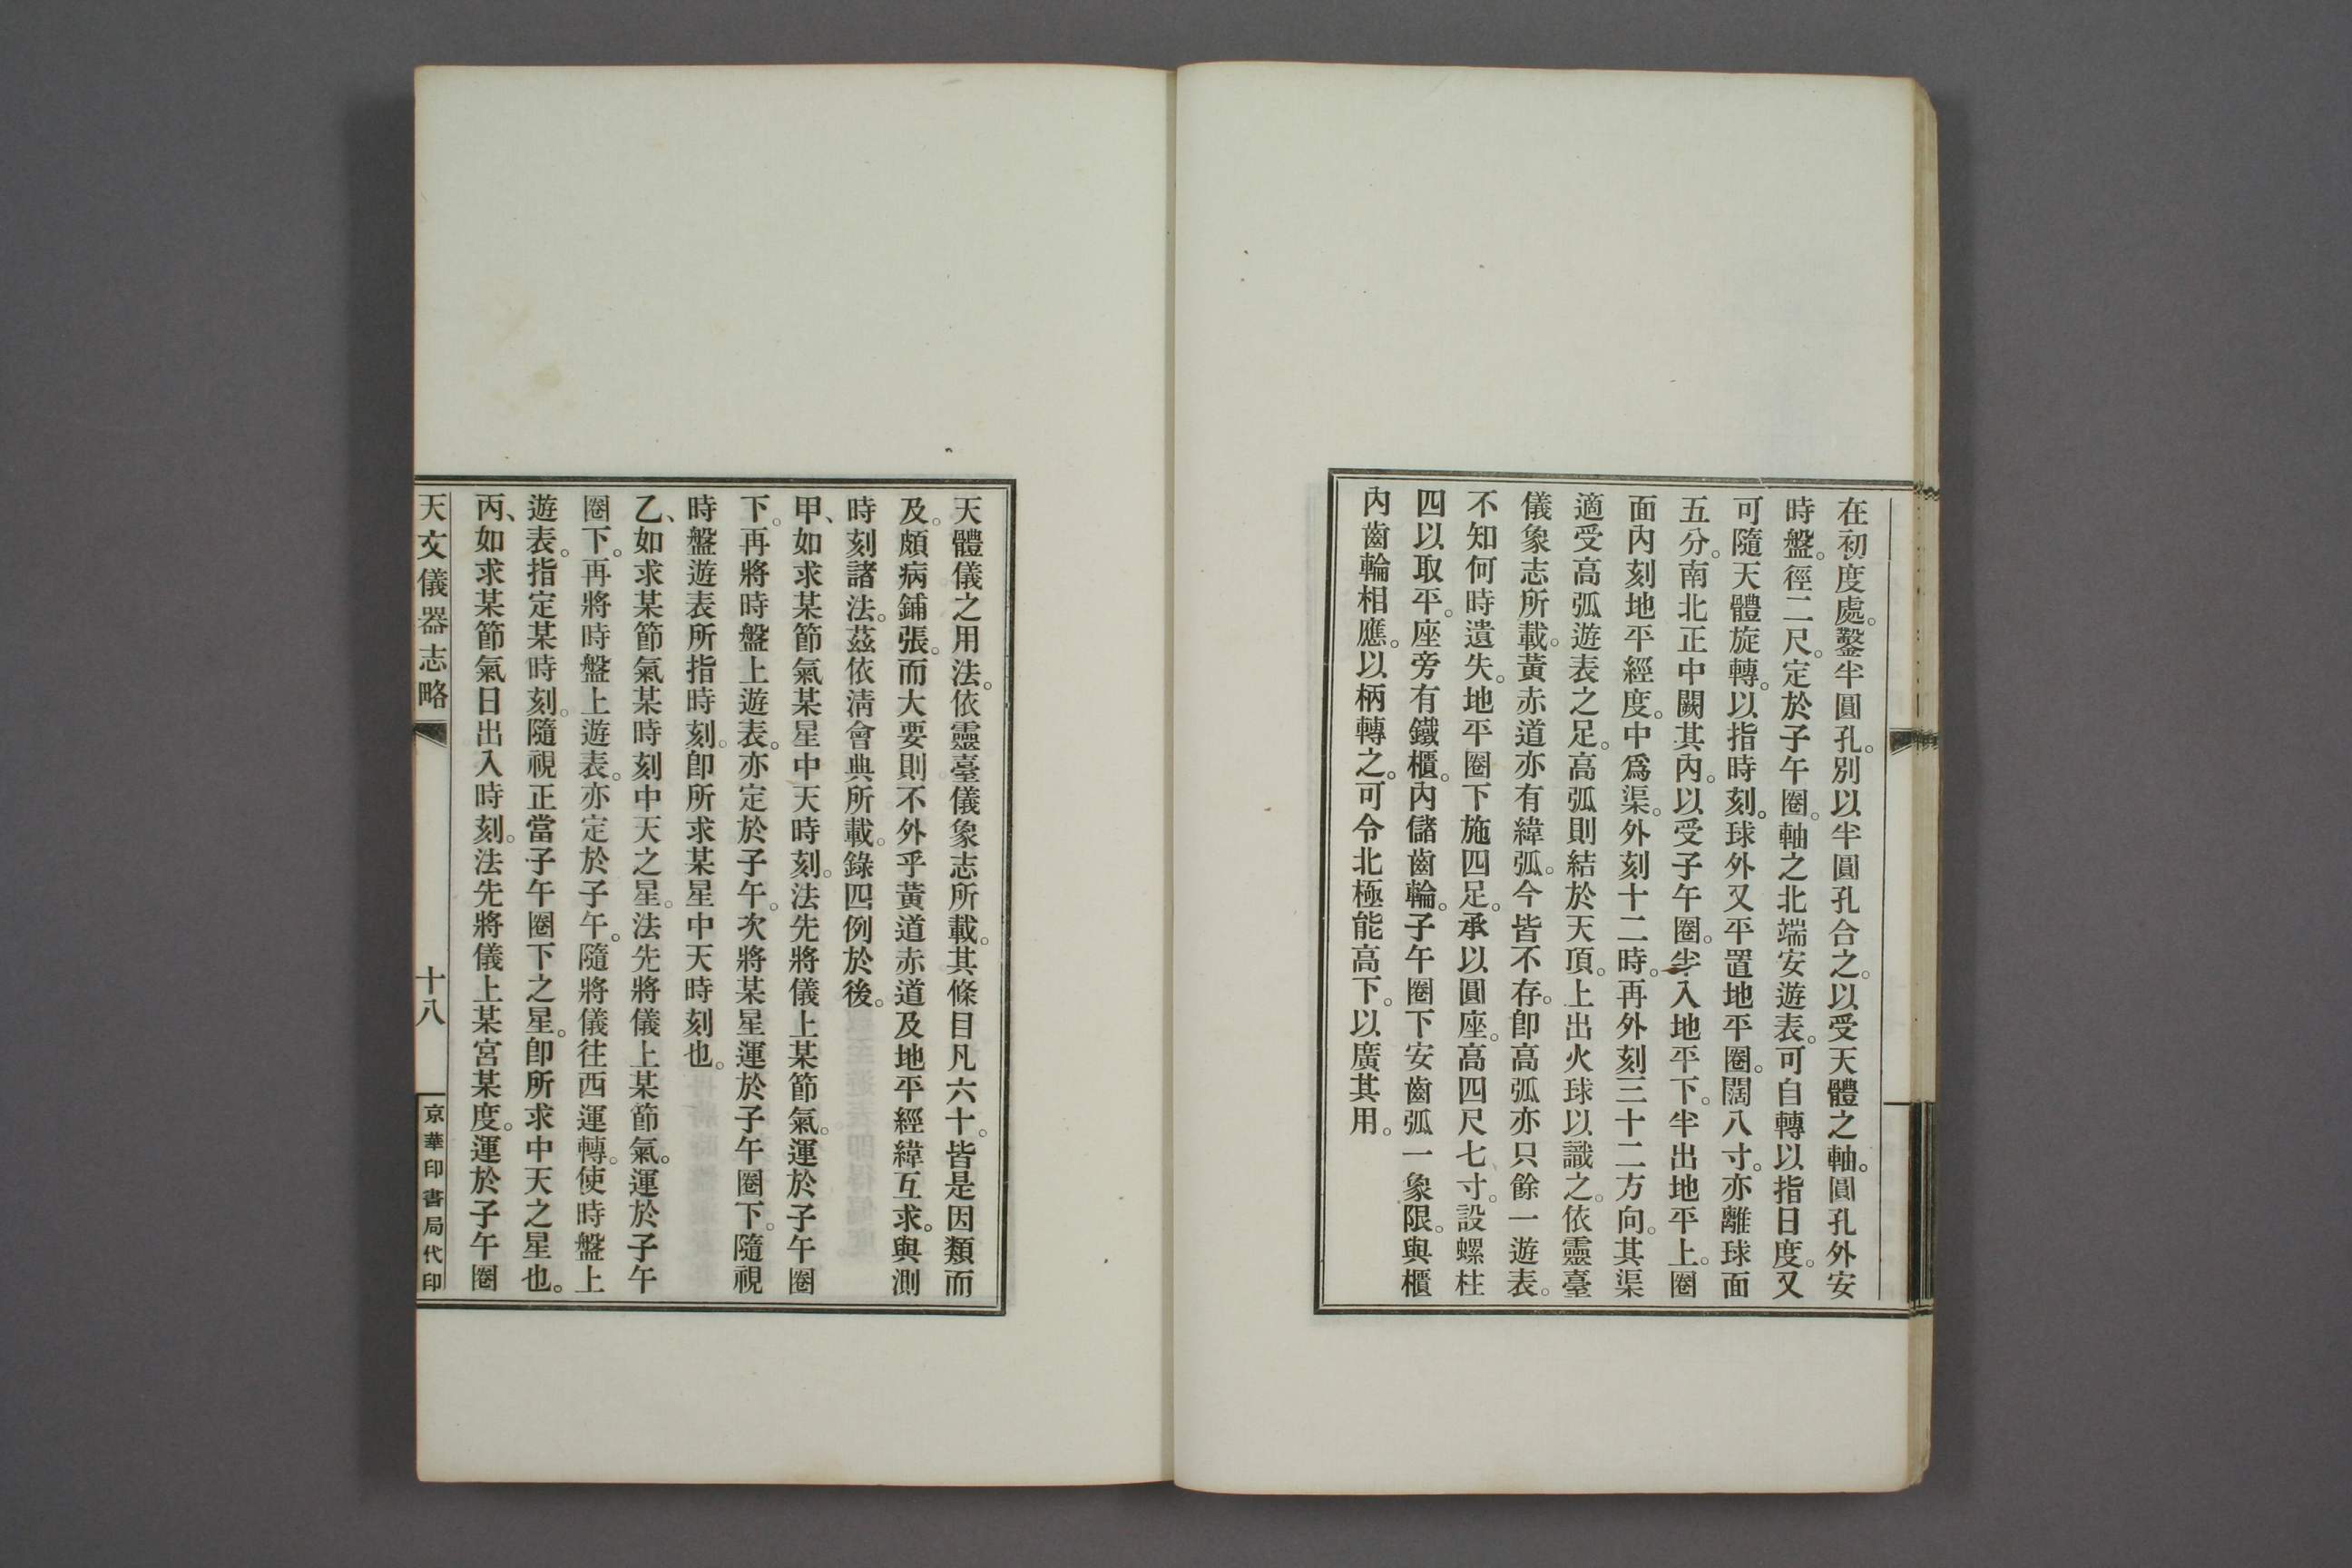 在初度處。鑿半圓孔。別以半圓孔合之。以受天體之軸。圓孔外安
時盤。徑二尺。定於子午圈。軸之北端安遊表。可自轉以指日度。又
可隨天體旋轉。以指時刻。球外又平置地平圈。闊八寸。亦離球面
五分。南北正中闕其內。以受子午圈。半入地平下。半出地平上。圈
面內刻地平經度。中爲渠。外刻十二時。再外刻三十二方向。其渠
適受高弧遊表之足。高弧則結於天頂。上出火球以識之。依靈臺
儀象志所載。黃赤道亦有緯弧。今皆不存。卽高弧亦只餘一遊表。
不知何時遺失。地平圈下施四足。承以圓座。高四尺七寸。設螺柱
四以取平。座旁有鐵櫃。內儲齒輪。子午圈下安齒弧一象限。與櫃
內齒輪相應。以柄轉之。可令北極能高下。以廣其用。
天體儀之用法。依靈臺儀象志所載。其條目凡六十。皆是因類而
及。頗病鋪張。而大要則不外乎黃道赤道及地平經緯互求。與測
時刻諸法。茲依淸會典所載。錄四例於後。
甲、如求某節氣某星中天時刻。法先將儀上某節氣。運於子午圈
下。再將時盤上遊表。亦定於子午。次將某星運於子午圈下。隨視
時盤遊表所指時刻。卽所求某星中天時刻也。
乙、如求某節氣某時刻中天之星。法先將儀上某節氣。運於子午
圈下。再將時盤上遊表。亦定於子午。隨將儀往西運轉。使時盤上
遊表。指定某時刻。隨視正當子午圈下之星。卽所求中天之星也。
丙、如求某節氣日出入時刻。法先將儀上某宮某度。運於子午圈
天文儀器志略
十八
京華印書局代印